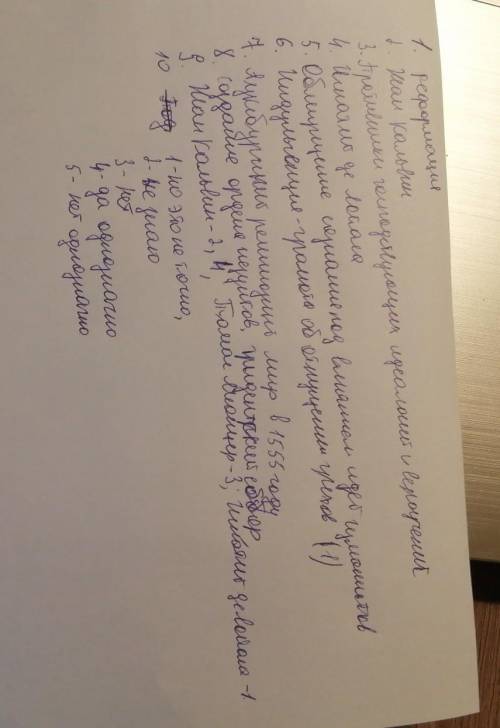 1. реформация
2. Жан Кальвин
3. Противники господствующих идеологий и вероучений
4. Игнатий де Лойола
5. Обмирщение сознание под влиянием идей гуманистов
6. Индульгенция - грамота об отпущении грехов (1)
7. Аугсбургский религиозный мир в 1555 году
8. Создание ордена иезуитов, тридентский собор
9. Жан Кальвин - 2, 4, Томас Мюнцер - 3, Игнатий де Лойола - 1
10
1 - но это не точно,
2 - не знаю
3 - нет
4 - да однозначно
5 - нет однозначно